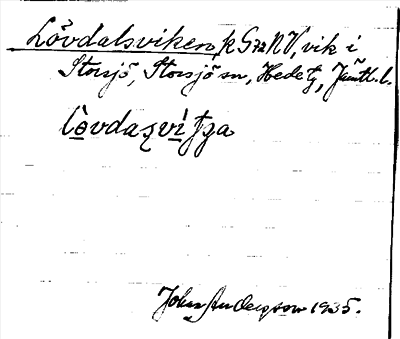 Lövdalsviken, k G72NV, vik i
Storsjö, Storsjö sn, Hede tg, Jämtl. l.
lö̀vdaʂvìʃga
John Andersson 1935.